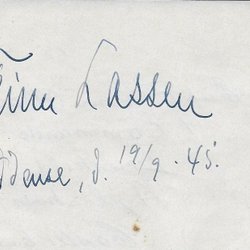 Finn Lassen
Odense, d. 19/9. 45.